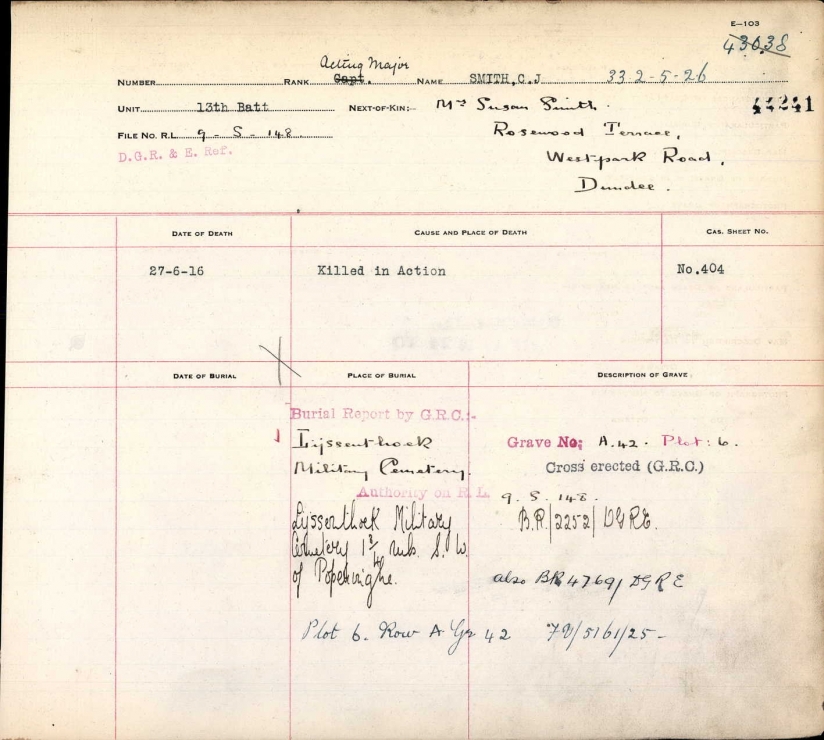 E—103
43038
Acting Major
NUMBER RANK Capt. NAME SMITH, C.J 332-5-26
UNIT 13th Batt NEXT-OF-KIN:— Mrs Susan Smith. 44241
FILE NO. R.L. 9 - S - 148. Rosewood Terrace,
D.G.R. & E. Ref. Westpark Road,
Dundee.
DATE OF DEATH CAUSE AND PLACE OF DEATH CAS. SHEET NO.
27-6-16 Killed in Action No.404
DATE OF BURIAL PLACE OF BURIAL DESCRIPTION OF GRAVE
Burial Report by G.R.C:-
Lijssenthoek Grave No; A.42. Plot: 6.
Military Cemetery. Cross erected (G.R.C.)
Authority on R L. 9. S. 148.
Lijssenthoek Military B.R/2252/DGRE.
Cemetery 1 3/4 mls. S.W.
of Poperinghe. also BR 4769/ DGRE
Plot 6. Row A Gr 42 /5161/25-